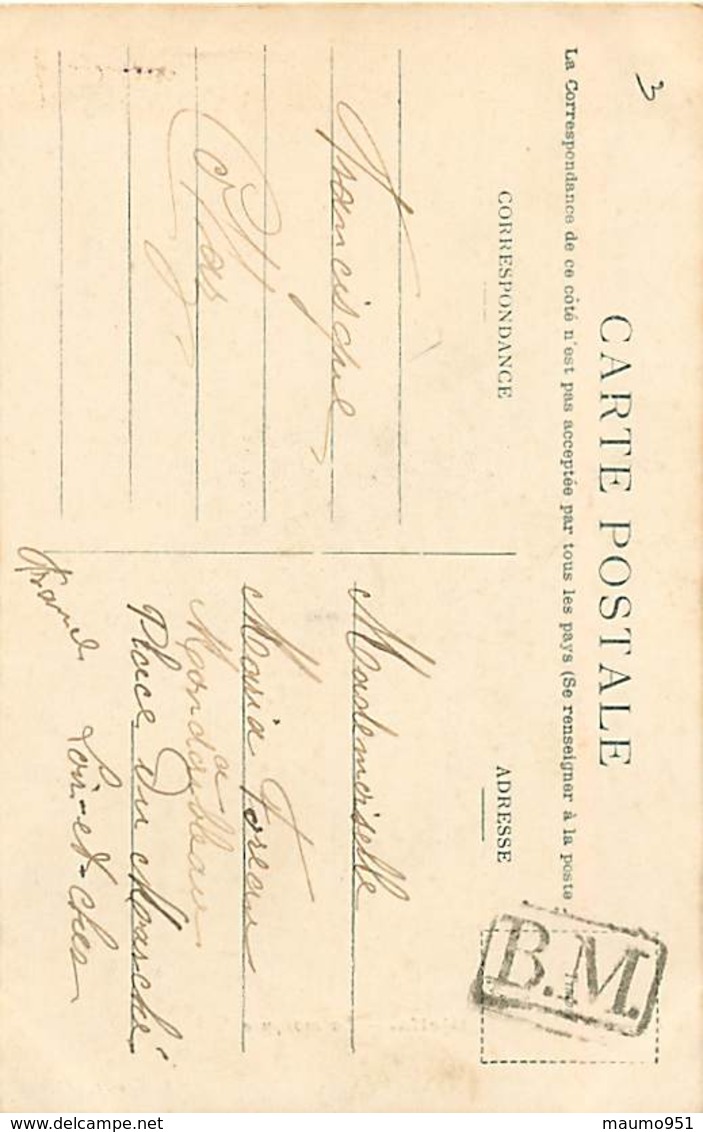 3
CARTE POSTALE
La Correspondance de ce côté n'est pas acceptée par tous les pays (Se renseigner à la poste
CORRESPONDANCE
ADRESSE
B.M.
Francisque
Mademoiselle
Maria Foreau
a
Mondoubleau
Place Du Marché
Loir-et-cher
maumo951